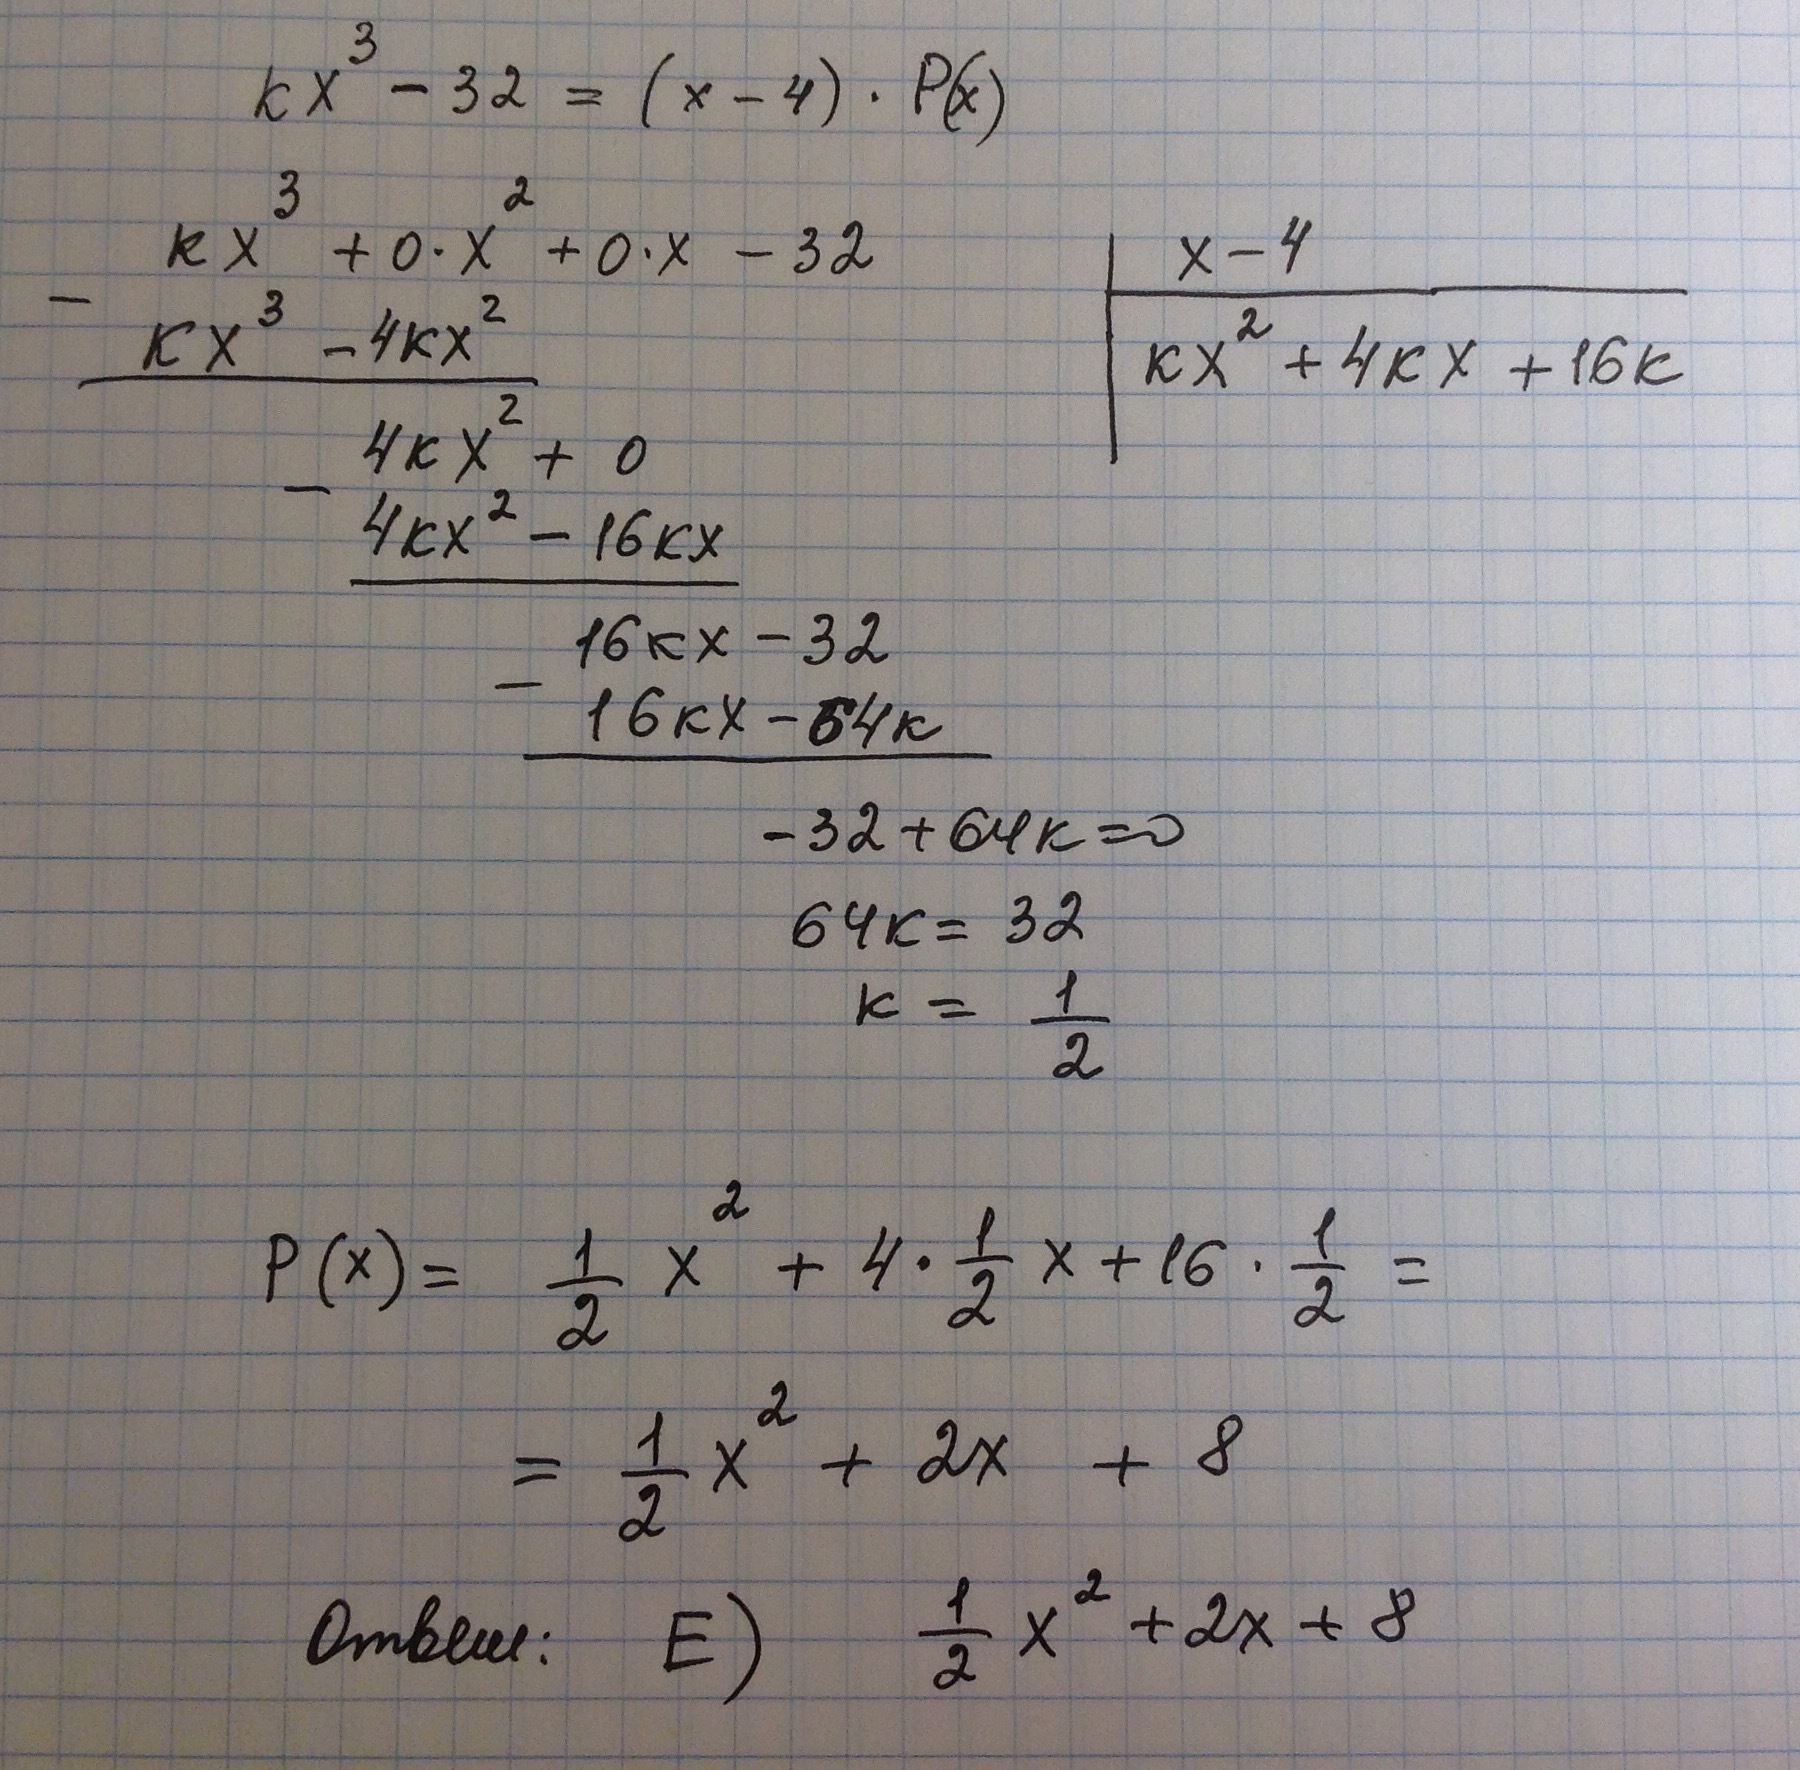 kx³ - 32 = (x - 4) · P(x)
kx³ + 0·x² + 0·x - 32 | x - 4
- kx³ - 4kx² | kx² + 4kx + 16k
4kx² + 0
- 4kx² - 16kx
16kx - 32
- 16kx - 64k
-32 + 64k = 0
64k = 32
k = 1/2
P(x) = 1/2 x² + 4 · 1/2 x + 16 · 1/2 =
= 1/2 x² + 2x + 8
Ответ: E) 1/2 x² + 2x + 8